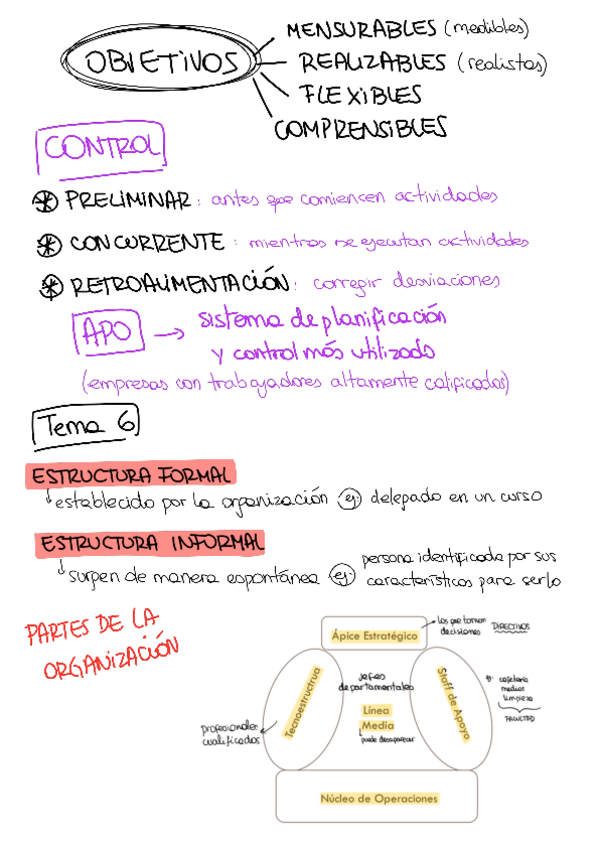 OBJETIVOS
MENSURABLES (medibles)
REALIZABLES (realistas)
FLEXIBLES
COMPRENSIBLES
CONTROL
PRELIMINAR: antes que comiencen actividades
CONCURRENTE: mientras se ejecutan actividades
RETROALIMENTACIÓN: corregir desviaciones
APO → sistema de planificación
y control más utilizado
(empresas con trabajadores altamente calificados)
Tema 6
ESTRUCTURA FORMAL
establecido por la organización ej: delegado en un curso
ESTRUCTURA INFORMAL
surgen de manera espontánea ej:
persona identificada por sus
características para serlo
PARTES DE LA
ORGANIZACIÓN
Ápice Estratégico
los que toman
decisiones DIRECTIVOS
Tecnoestructrua
profesionales
cualificados
jefes
departamentales
Línea
Media
puede desaparecer
Staff de Apoyo
ej: cafetería
medios
limpieza
FACULTAD
Núcleo de Operaciones